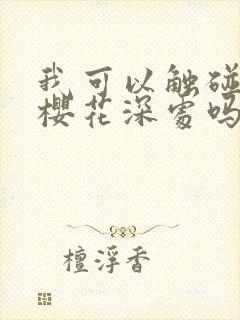 我可以触碰
樱花深处吗
檀浮香